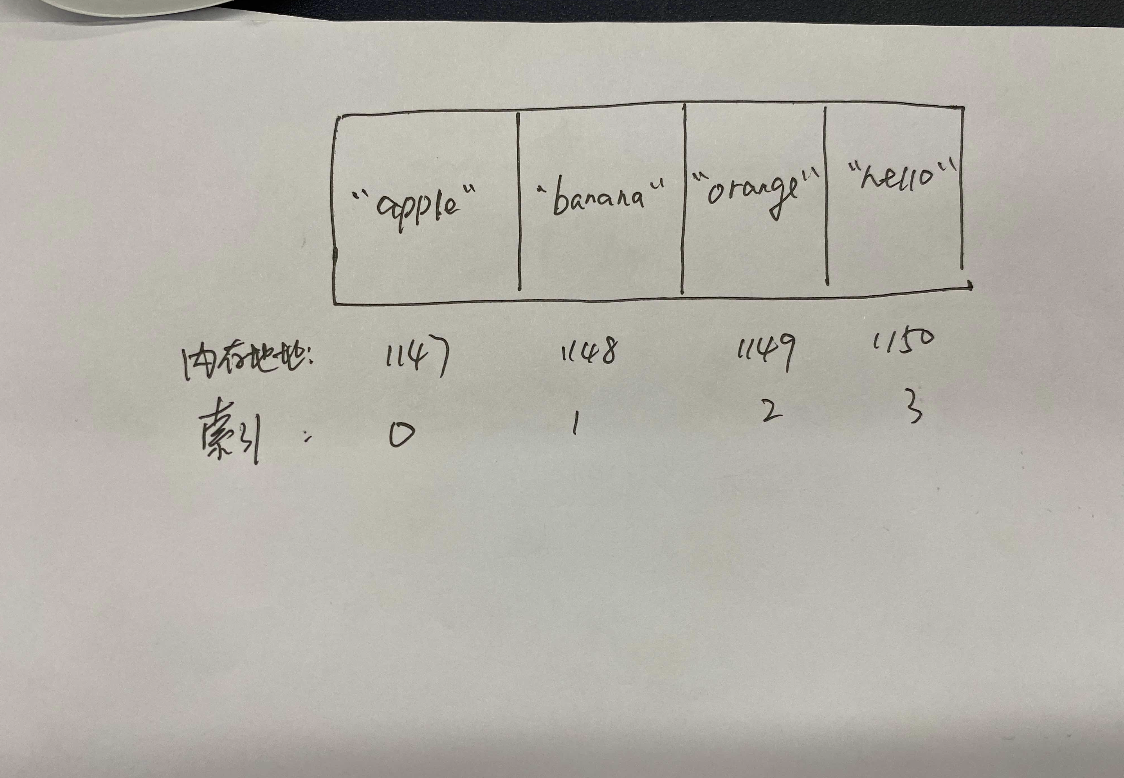 "apple" "banana" "orange" "hello"
内存地地: 1147 1148 1149 1150
索引: 0 1 2 3